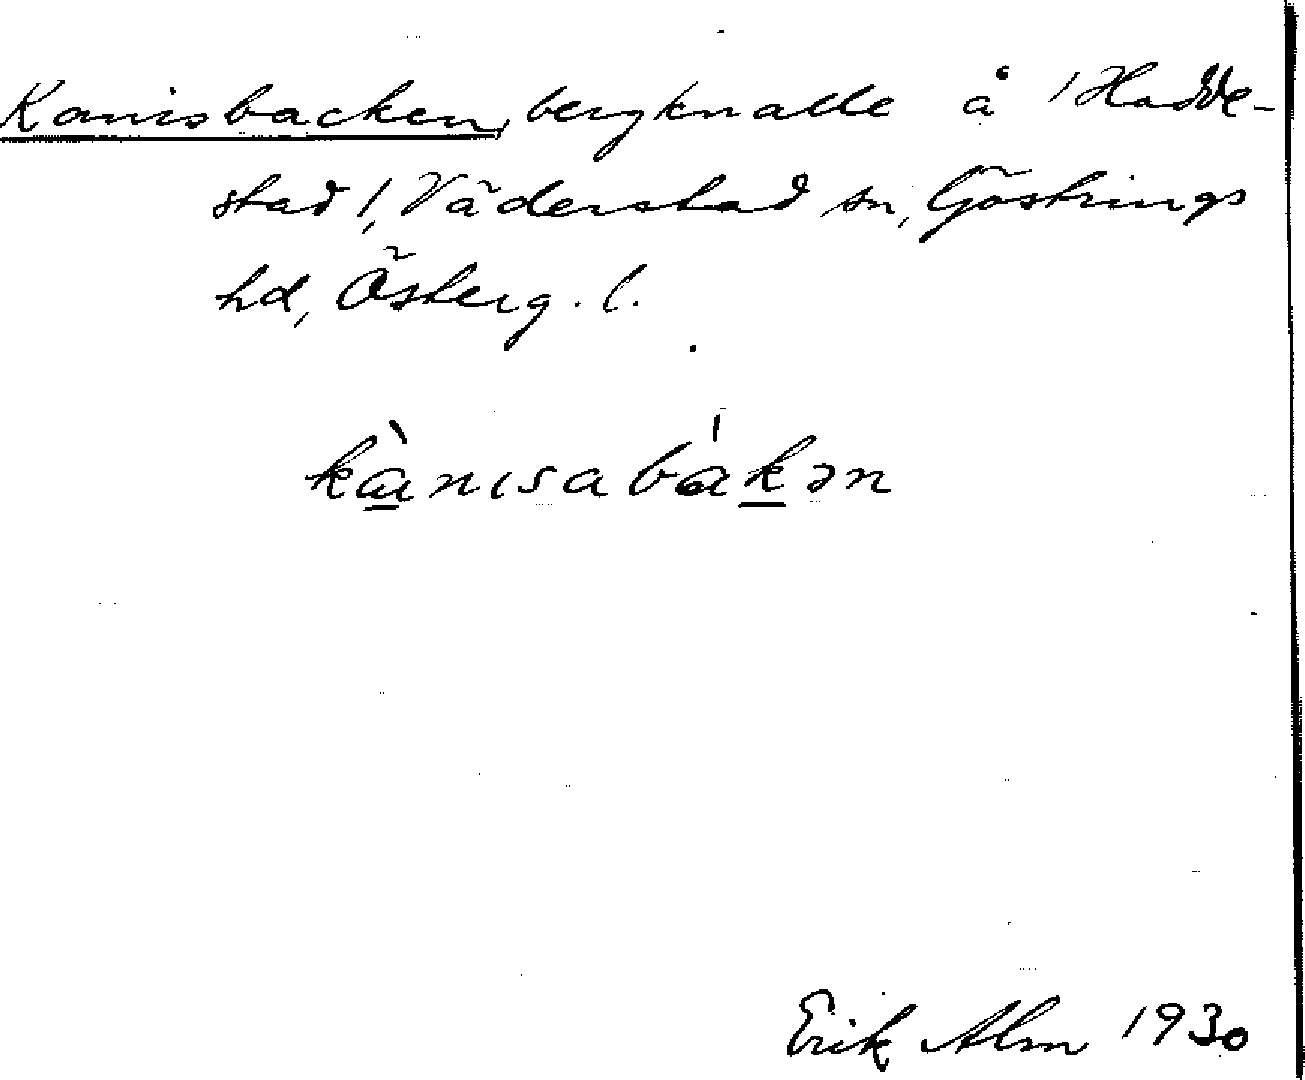 Kanisbacken, bergknalle å /Hadde-
stad/, Väderstad sn, Göstrings
hd, Österg. l.
kànısabákən
Erik Alm 1930